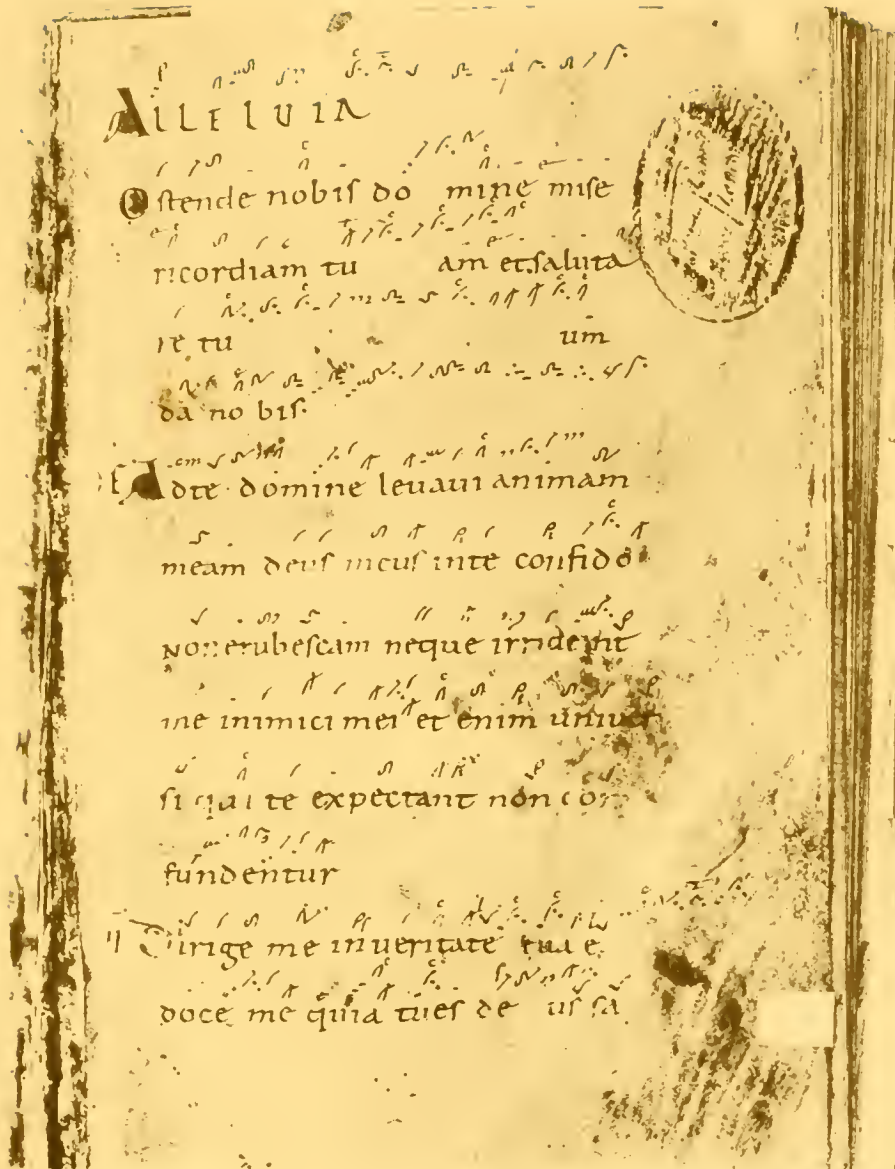 ALLELUIA
Ostende nobis do mine mise
ricordiam tu am et saluta
re tu um
da no bis.
Adte domine levavi animam
meam deus meus inte confido
Non erubescam neque irrideant
me inimici mei et enim univer
si qui te expectant non con
fundentur
Dirige me inveritate tua e
doce me quia tues de us sa